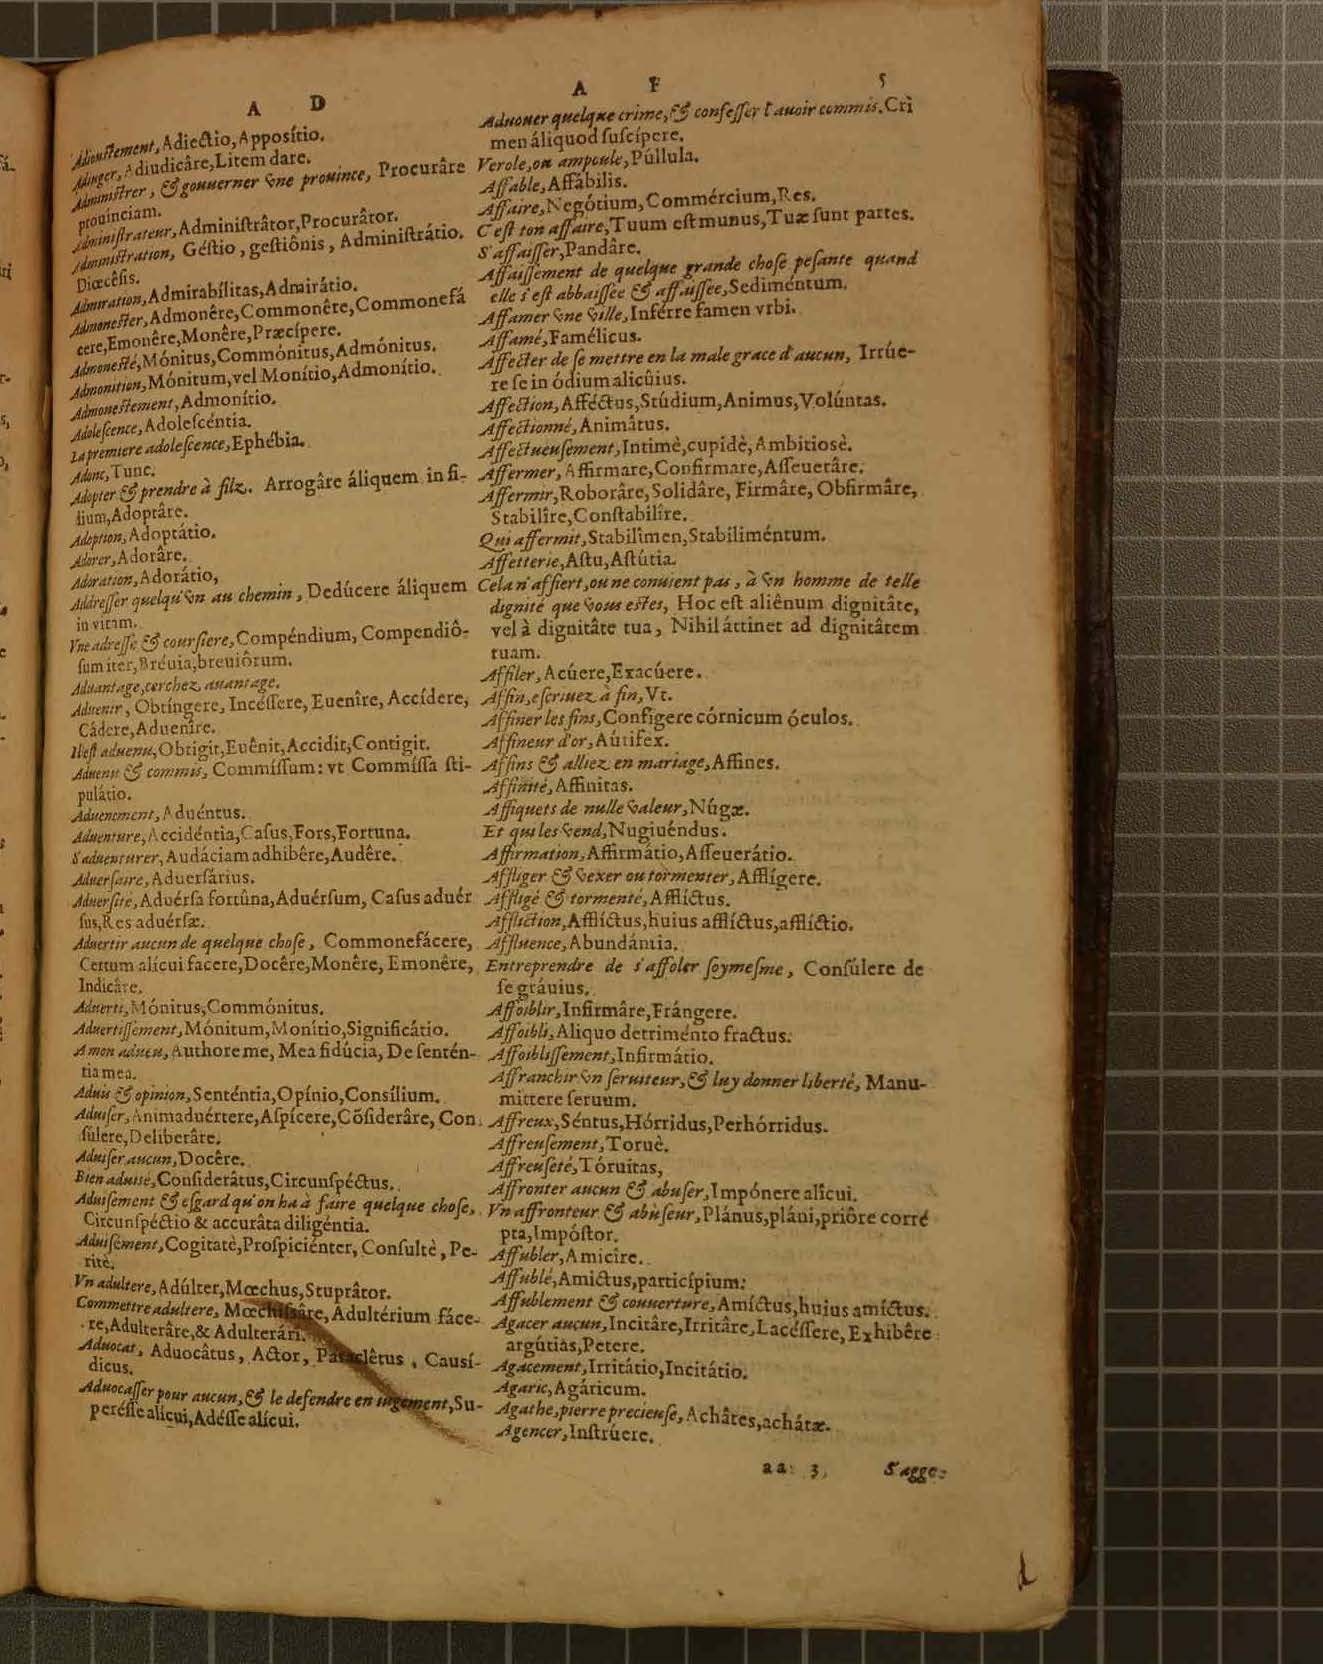 A D
Adiouſtement, Adiectio, Appoſítio.
Adiuger, Adiudicâre, Litem dare.
Adminiſtrer, & gouuerner vne prouince, Procurâre
prouínciam.
Adminiſtrateur, Adminiſtrâtor, Procurâtor.
Adminiſtration, Géſtio, geſtiônis, Adminiſtrátio.
Diœcêſis.
Admiration, Admirabílitas, Admirátio.
Admoneſter, Admonêre, Commonêre, Commonefá
cere, Emonêre, Monêre, Præcípere.
Admoneſté, Mónitus, Commónitus, Admónitus.
Admonition, Mónitum, vel Monítio, Admonítio.
Admoneſtement, Admonítio.
Adoleſcence, Adoleſcéntia.
La premiere adoleſcence, Ephébia.
Adonc, Tunc.
Adopter & prendre à filz. Arrogâre áliquem in fi-
lium, Adoptâre.
Adoption, Adoptátio.
Adorer, Adorâre.
Adoration, Adorátio,
Addreſſer quelqu'vn au chemin, Dedúcere áliquem
in viam.
Vne adreſſe & courſiere, Compéndium, Compendiô-
ſum iter, Bréuia, breuiôrum.
Aduantage, cerchez auantage.
Aduenir, Obtíngere, Incéſſere, Euenîre, Accídere,
Cádere, Aduenîre.
Il eſt aduenu, Obtigit, Euênit, Accidit, Contigit.
Aduenu & commis, Commíſſum: vt Commíſſa ſti-
pulátio.
Aduenement, Aduéntus.
Aduenture, Accidéntia, Caſus, Fors, Fortuna.
S'aduenturer, Audáciam adhibêre, Audêre.
Aduerſaire, Aduerſárius.
Aduerſité, Aduérſa fortûna, Aduérſum, Caſus aduér
ſus, Res aduérſæ.
Aduertir aucun de quelque choſe, Commonefácere,
Certum alícui facere, Docêre, Monêre, Emonêre,
Indicâre.
Aduerti, Mónitus, Commónitus.
Aduertiſſement, Mónitum, Monítio, Significátio.
A mon adueu, Authore me, Mea fidúcia, De ſentén-
tia mea.
Aduis & opinion, Senténtia, Opínio, Consílium.
Aduiſer, Animaduértere, Aſpícere, Cõſiderâre, Con
ſúlere, Deliberâre.
Aduiſer aucun, Docêre.
Bien aduisé, Conſiderátus, Circunſpéctus.
Aduiſement & eſgard qu'on ha à faire quelque choſe,
Circunſpéctio & accurâta diligéntia.
Aduiſément, Cogitatè, Proſpiciénter, Conſultè, Pe-
ritè.
Vn adultere, Adúlter, Mœchus, Stuprâtor.
Commettre adultere, Mœchiſsâre, Adultérium fáce-
re, Adulterâre, & Adulterári.
Aduocat, Aduocâtus, Actor, Paraclêtus, Cauſí-
dicus.
Aduocaſſer pour aucun, & le defendre en iugement, Su-
peréſſe alicui, Adéſſe alícui.
A F 5
Aduouer quelque crime, & confeſſer l'auoir commis. Cri
men áliquod ſuſcípere.
Verole, ou ampoule, Púllula.
Affable, Affábilis.
Affaire, Negótium, Commércium, Res.
C'eſt ton affaire, Tuum eſt munus, Tuæ ſunt partes.
S'affaiſſer, Pandâre.
Affaiſſement de quelque grande choſe peſante quand
elle s'eſt abbaiſſée & affaiſſée, Sediméntum.
Affamer vne ville, Inférre famen vrbi.
Affamé, Famélicus.
Affecter de ſe mettre en la male grace d'aucun, Irrúe-
re ſe in ódium alicûius.
Affection, Afféctus, Stúdium, Animus, Volúntas.
Affectionné, Animâtus.
Affectueuſement, Intimè, cupidè, Ambitiosè.
Affermer, Affirmare, Confirmare, Aſſeuerâre.
Affermir, Roborâre, Solidâre, Firmâre, Obfirmâre,
Stabilîre, Conſtabilîre.
Qui affermit, Stabilimen, Stabiliméntum.
Affetterie, Aſtu, Aſtútia.
Cela n'affiert, ou ne conuient pas, à vn homme de telle
dignité que vous eſtes, Hoc eſt aliênum dignitâte,
vel à dignitâte tua, Nihil áttinet ad dignitâtem
tuam.
Affiler, Acúere, Exacúere.
Affin, eſcriuez à fin, Vt.
Affiner les fins, Configere córnicum óculos.
Affineur d'or, Aúrifex.
Affins & alliez en mariage, Affines.
Affinité, Affinitas.
Affiquets de nulle valeur, Núgæ.
Et qui les vend, Nugiuéndus.
Affirmation, Affirmátio, Aſſeuerátio.
Affliger & vexer ou tormenter, Afflígere.
Affligé & tormenté, Afflíctus.
Affliction, Afflíctus, huius afflíctus, afflíctio.
Affluence, Abundántia.
Entreprendre de s'affoler ſoymeſme, Conſúlere de
ſe gráuius.
Affoiblir, Infirmâre, Frángere.
Affoibli, Aliquo detriménto fractus.
Affoibliſſement, Infirmátio.
Affranchir vn ſeruiteur, & luy donner liberté, Manu-
mittere ſeruum.
Affreux, Séntus, Hórridus, Perhórridus.
Affreuſement, Toruè.
Affreuſeté, Tóruitas,
Affronter aucun & abuſer, Impónere alicui.
Vn affronteur & abuſeur, Plánus, pláni, priôre corré
pta, Impóſtor.
Affubler, Amicîre.
Affublé, Amictus, particípium.
Affublement & couuerture, Amíctus, huius amíctus.
Agacer aucun, Incitâre, Irritâre, Lacéſſere, Exhibêre
argútias, Petere.
Agacement, Irritátio, Incitátio.
Agaric, Agáricum.
Agathe, pierre precieuſe, Achâtes, achátæ.
Agencer, Inſtrúere.
aa 3 S'agge-
d